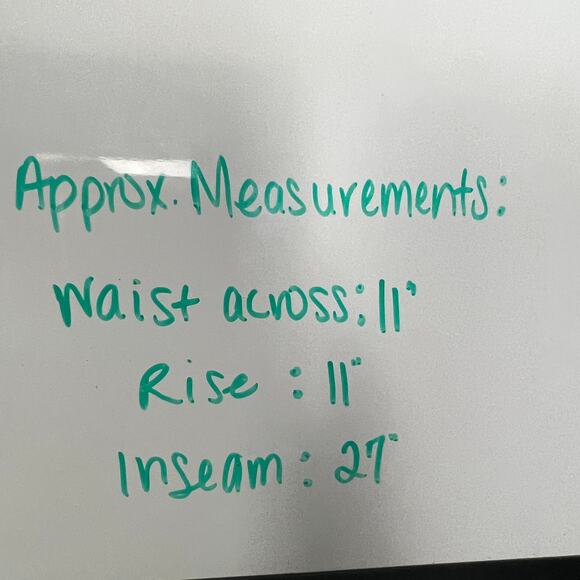 Approx. Measurements:
Waist across: 11"
Rise : 11"
Inseam : 27"